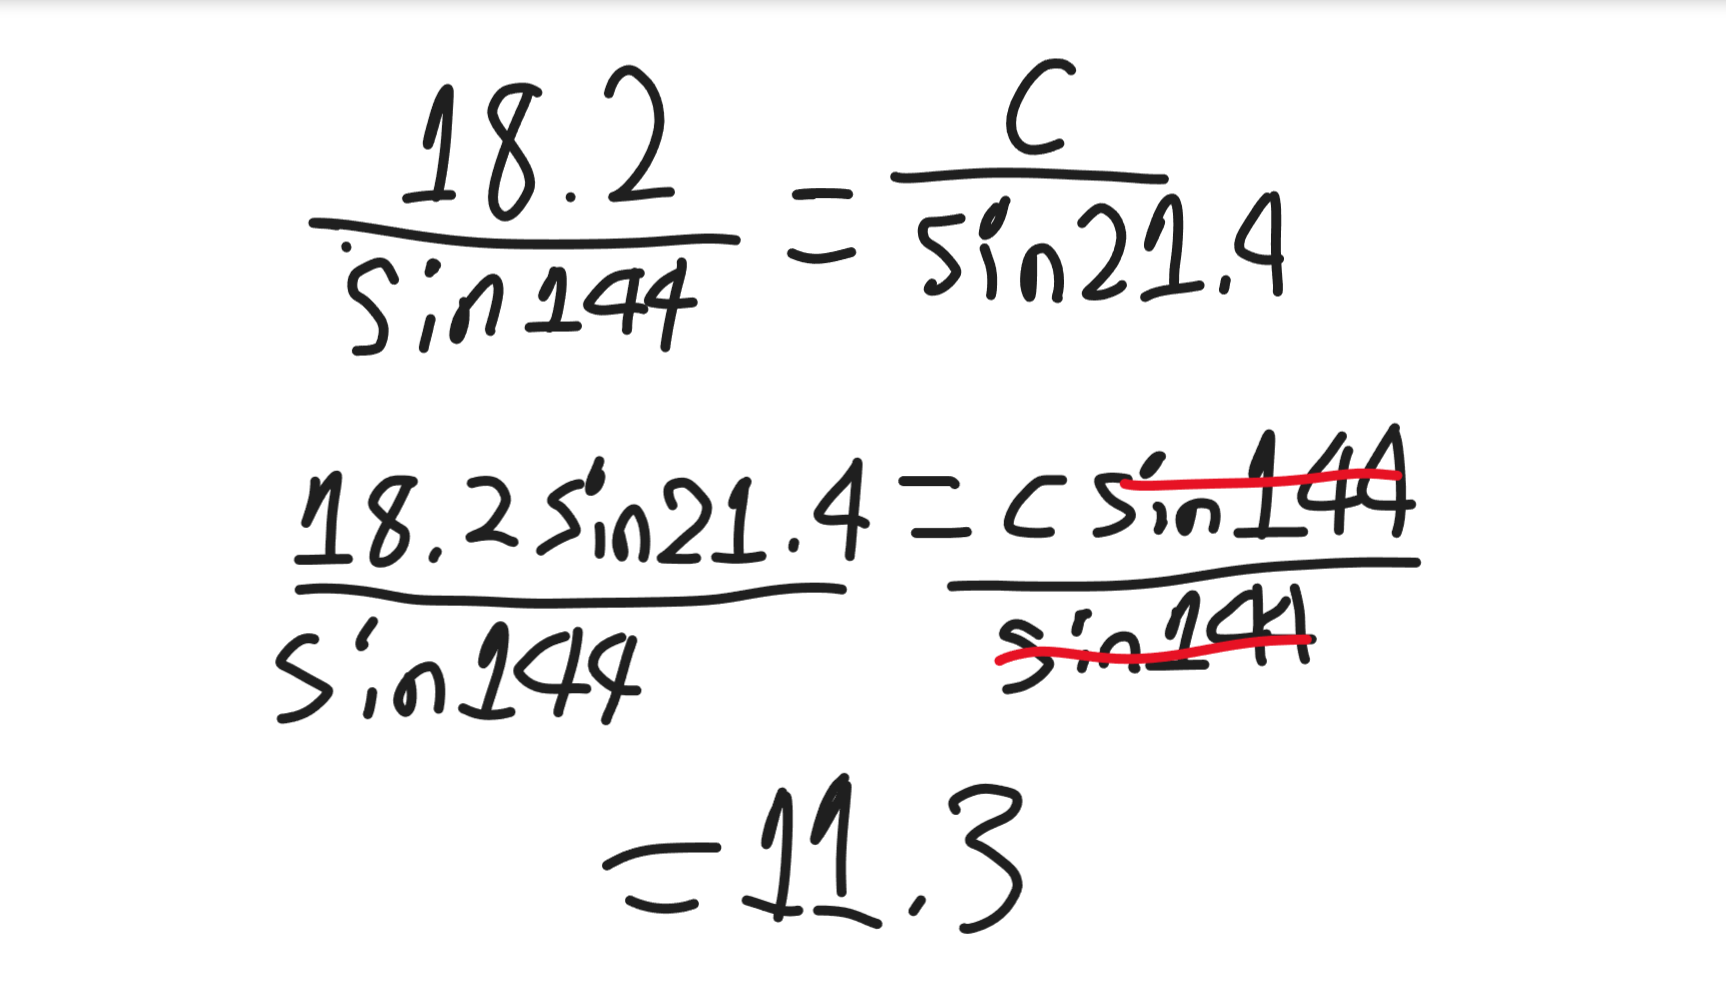 18.2 / sin144 = c / sin21.4
18.2 sin21.4 / sin144 = c sin144 / sin144
= 11.3